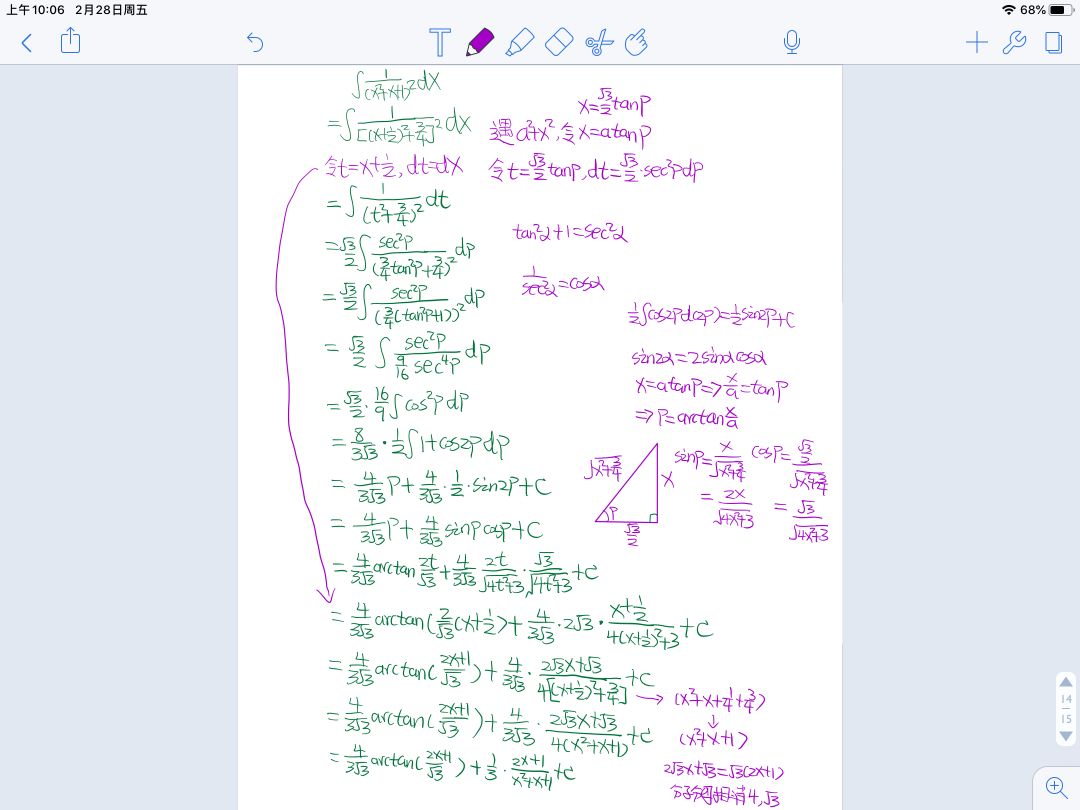 上午10:06 2月28日周五
68%
∫ 1/(x²+x+1)² dx
= ∫ 1/[(x+1/2)²+3/4]² dx
x=√3/2 tanp
遇a²+x²,令x=atanp
令t=x+1/2, dt=dx
令t=√3/2 tanp, dt=√3/2·sec²p dp
= ∫ 1/(t²+3/4)² dt
tan²α+1=sec²α
= √3/2 ∫ sec²p/(3/4 tan²p+3/4)² dp
1/sec²α=cosα
= √3/2 ∫ sec²p/(3/4(tan²p+1))² dp
1/2∫cos2p d(2p)=1/2 sin2p+C
= √3/2 ∫ sec²p/(9/16 sec⁴p) dp
sin2α=2sinαcosα
x=atanp=>x/a=tanp
= √3/2 · 16/9 ∫cos²p dp
=>p=arctan x/a
= 8/3√3 · 1/2 ∫1+cos2p dp
√x²+3/4
x
p
√3/2
sinp=x/√x²+3/4
= 2x/√4x²+3
cosp=(√3/2)/√x²+3/4
= √3/√4x²+3
= 4/3√3 p + 4/3√3 · 1/2 · sin2p+C
= 4/3√3 p + 4/3√3 sinpcosp+C
= 4/3√3 arctan 2t/√3 + 4/3√3 2t/√4t²+3 · √3/√4t²+3 +C
= 4/3√3 arctan(2/√3(x+1/2)) + 4/3√3 · 2√3 · (x+1/2)/(4(x+1/2)²+3) +C
= 4/3√3 arctan(2x+1/√3) + 4/3√3 · (2√3x+√3)/(4[(x+1/2)²+3/4]) +C
→ (x²+x+1/4+3/4)
↓
(x²+x+1)
= 4/3√3 arctan(2x+1/√3) + 4/3√3 · (2√3x+√3)/(4(x²+x+1)) +C
= 4/3√3 arctan(2x+1/√3) + 1/3 · (2x+1)/(x²+x+1) +C
2√3x+√3=√3(2x+1)
分子分母相消4,√3
14
15